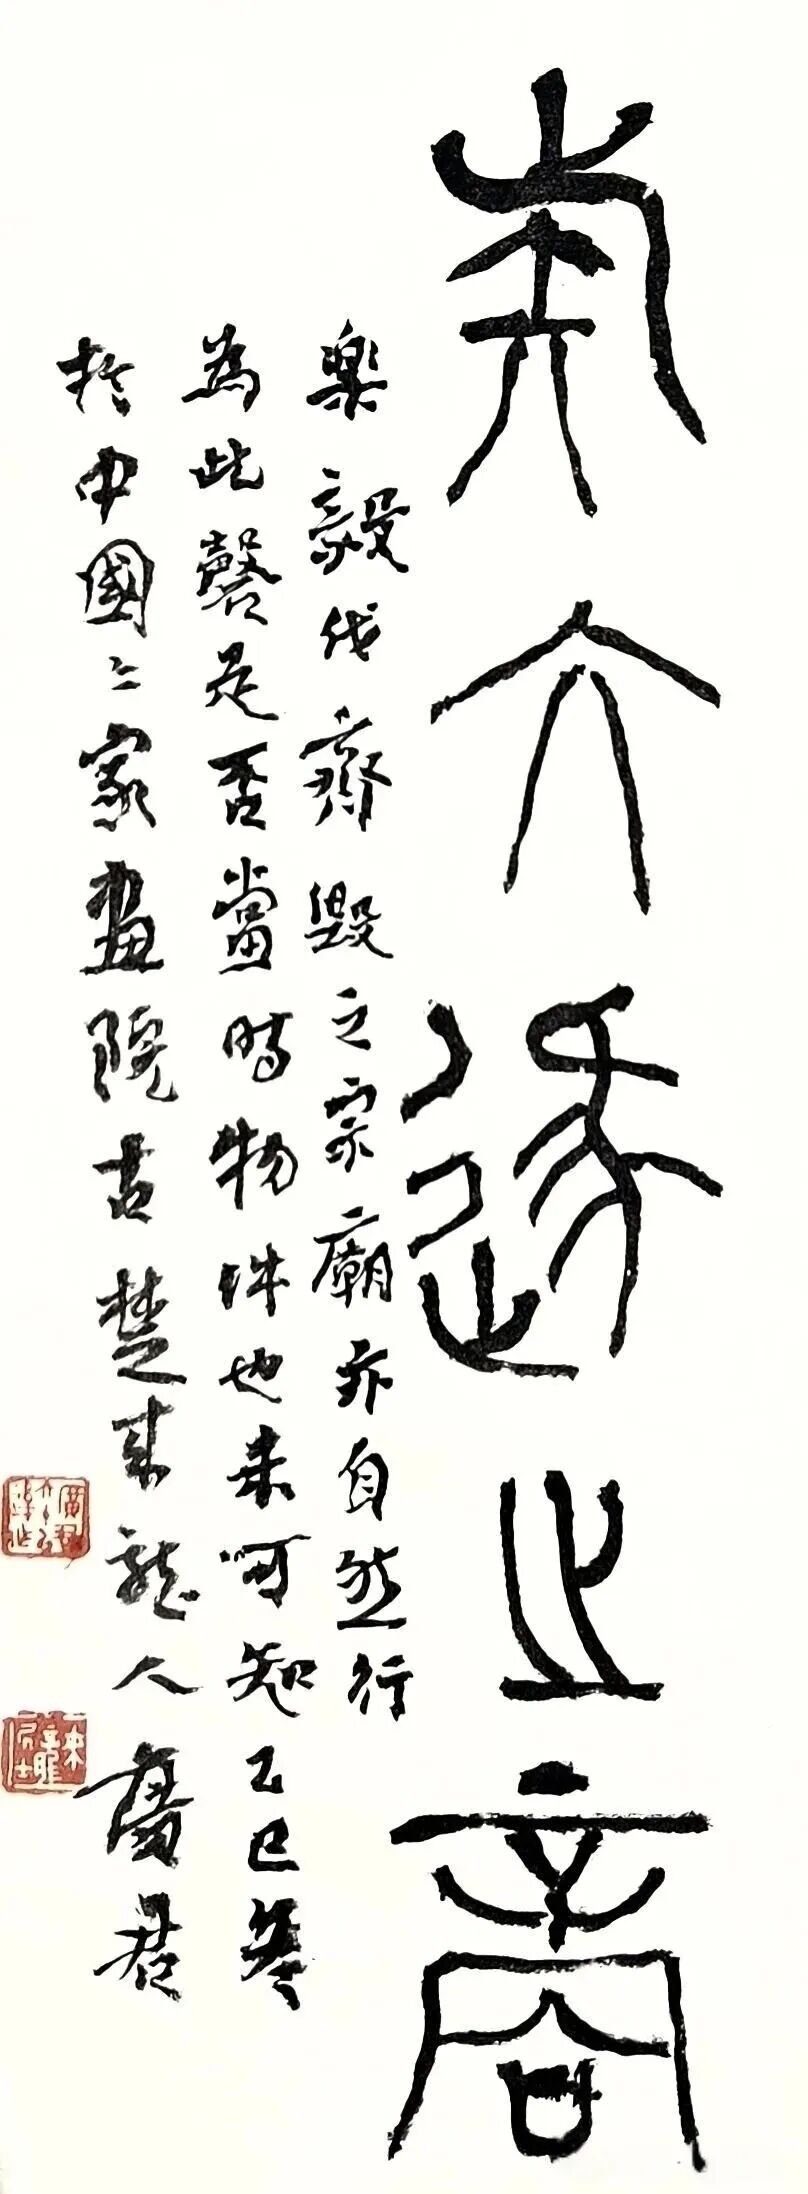 六逐之商
樂毅伐齊毀之宗廟亦自然行
為此磬是否當時物件也未可知乙巳冬
於中國〻家畫院古楚來龍人廣君